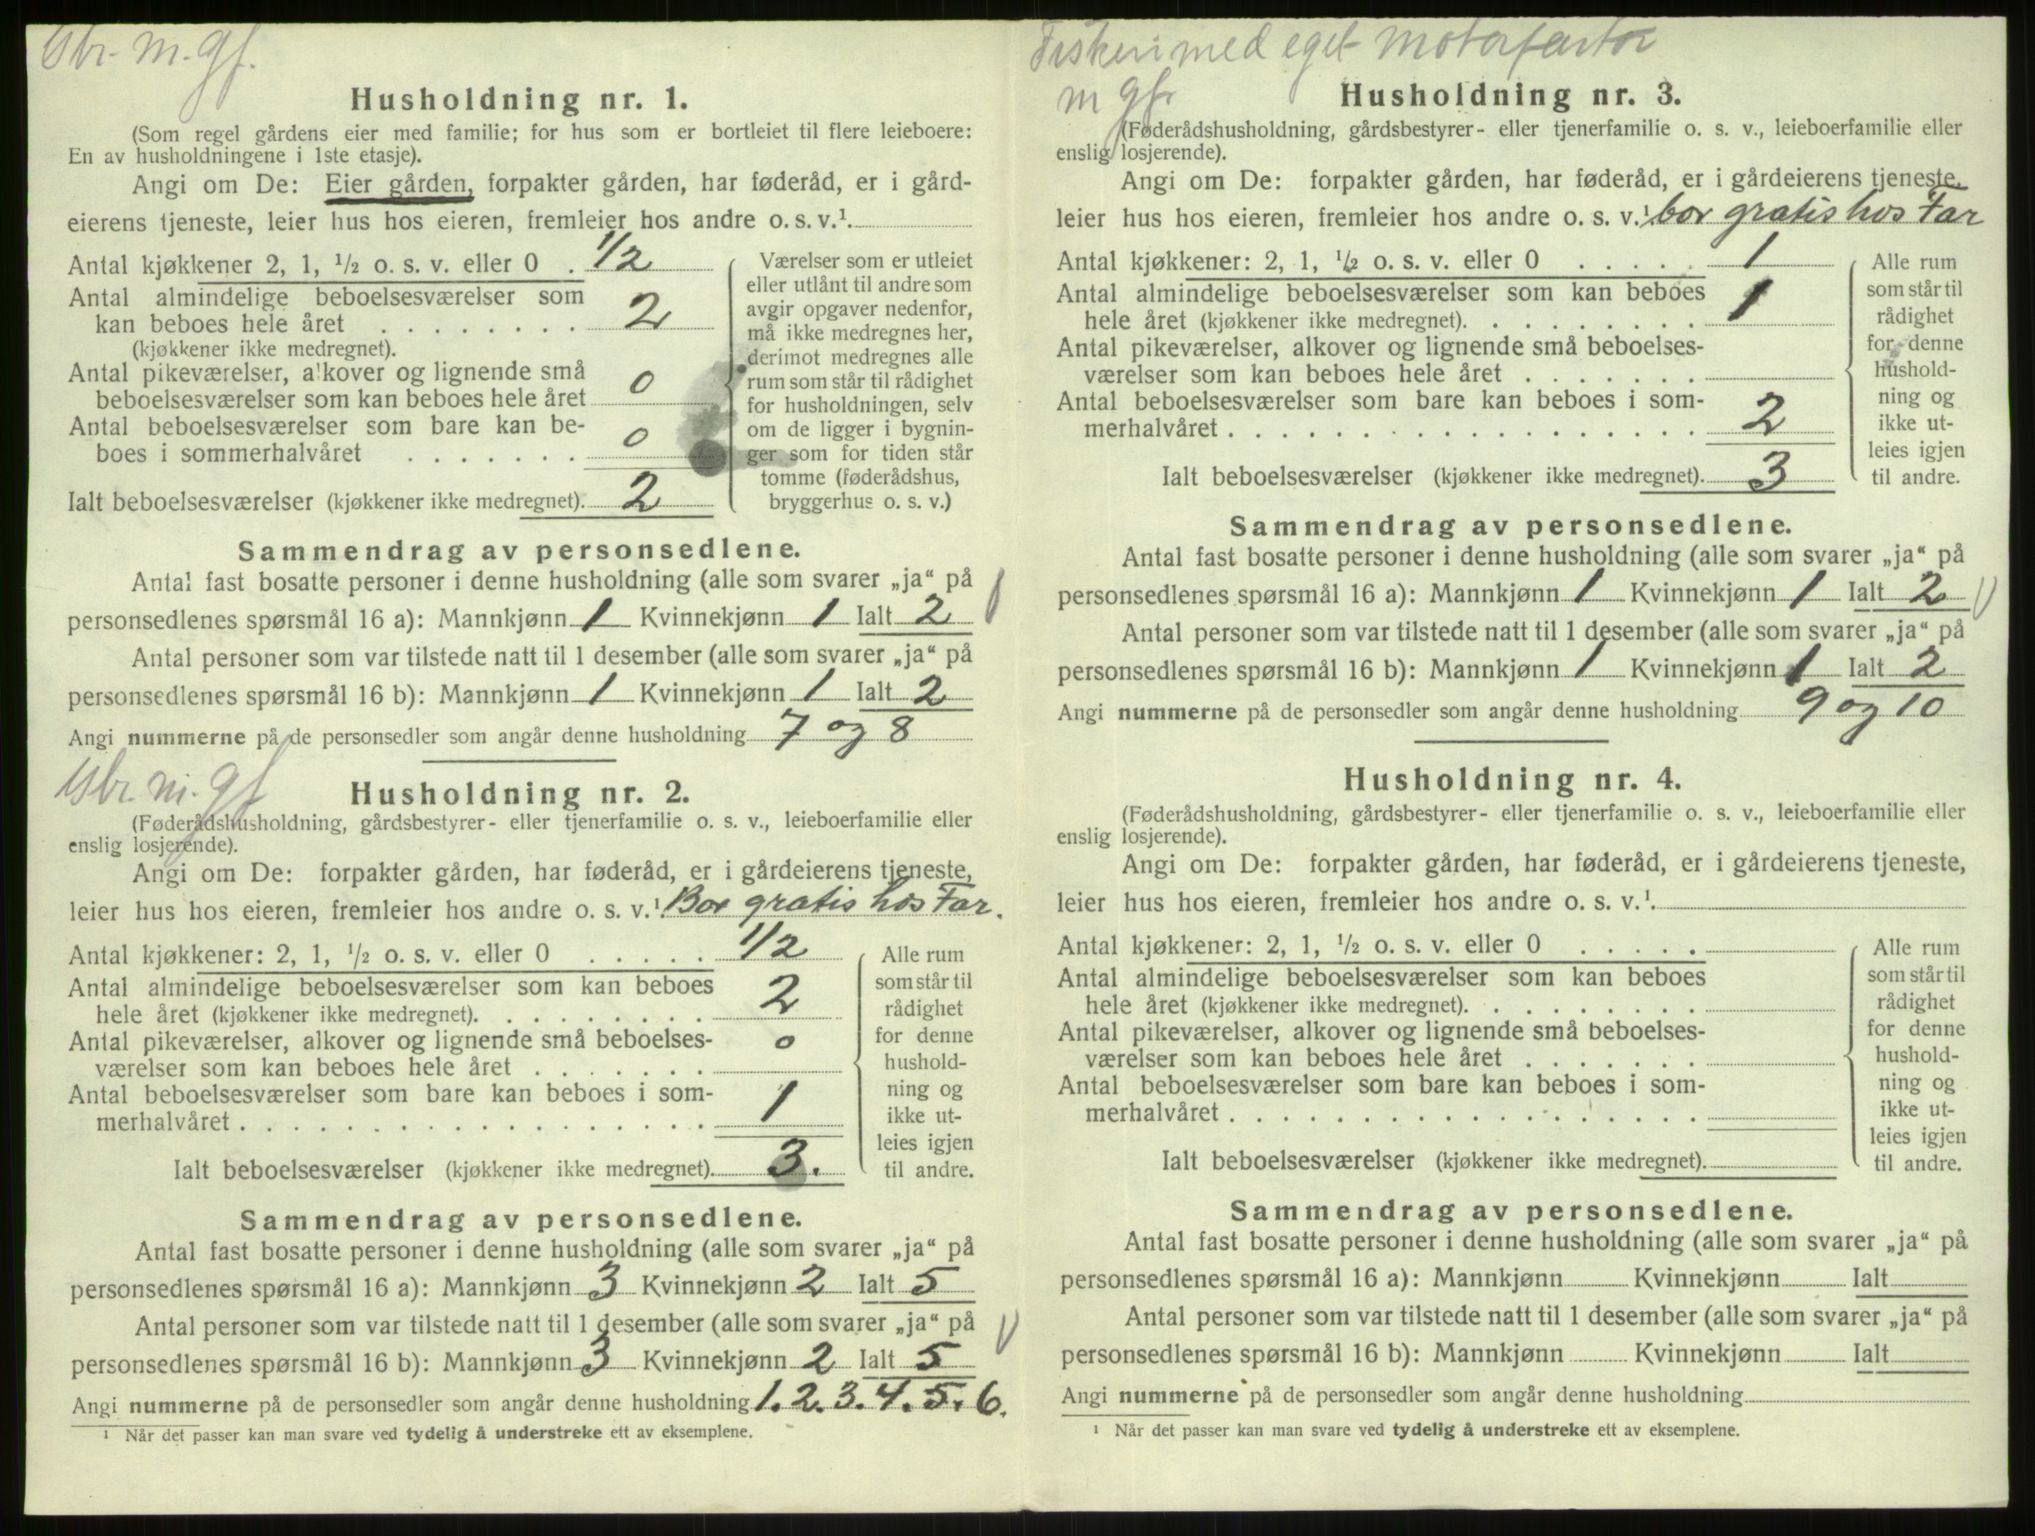 Gbr. m. gf.
Husholdning nr. 1.
(Som regel gårdens eier med familie; for hus som er bortleiet til flere leieboere:
En av husholdningene i 1ste etasje).
Angi om De: Eier gården, forpakter gården, har føderåd, er i gård-
eierens tjeneste, leier hus hos eieren, fremleier hos andre o. s. v.¹
Antal kjøkkener 2, 1, ½ o. s. v. eller 0 . 1/2
Antal almindelige beboelsesværelser som
kan beboes hele året . . . . . . . . 2
(kjøkkener ikke medregnet).
Antal pikeværelser, alkover og lignende små
beboelsesværelser som kan beboes hele året 0
Antal beboelsesværelser som bare kan be-
boes i sommerhalvåret . . . . . . . 0
Ialt beboelsesværelser (kjøkkener ikke medregnet). 2
Værelser som er utleiet
eller utlånt til andre som
avgir opgaver nedenfor,
må ikke medregnes her,
derimot medregnes alle
rum som står til rådighet
for husholdningen, selv
om de ligger i bygnin-
ger som for tiden står
tomme (føderådshus,
bryggerhus o. s. v.)
Sammendrag av personsedlene.
Antal fast bosatte personer i denne husholdning (alle som svarer „ja“ på
personsedlenes spørsmål 16 a): Mannkjønn 1 Kvinnekjønn 1 Ialt 2
Antal personer som var tilstede natt til 1 desember (alle som svarer „ja“ på
personsedlenes spørsmål 16 b): Mannkjønn 1 Kvinnekjønn 1 Ialt 2
Angi nummerne på de personsedler som angår denne husholdning 7 og 8
Gbr. m. gf
Husholdning nr. 2.
(Føderådshusholdning, gårdsbestyrer- eller tjenerfamilie o. s. v., leieboerfamilie eller
enslig losjerende).
Angi om De: forpakter gården, har føderåd, er i gårdeierens tjeneste,
leier hus hos eieren, fremleier hos andre o. s. v.¹ Bor gratis hos Far.
Antal kjøkkener: 2, 1, ½ o. s. v. eller 0 . . . . . 1/2
Antal almindelige beboelsesværelser som kan beboes
hele året (kjøkkener ikke medregnet). . . . . . . . . 2
Antal pikeværelser, alkover og lignende små beboelses- 0
værelser som kan beboes hele året . . . . . . .
Antal beboelsesværelser som bare kan beboes i som-
merhalvåret . . . . . . . . . . . . . . . . . . 1
Ialt beboelsesværelser (kjøkkener ikke medregnet). 3.
Alle rum
som står til
rådighet
for denne
hushold-
ning og
ikke ut-
leies igjen
til andre.
Sammendrag av personsedlene.
Antal fast bosatte personer i denne husholdning (alle som svarer „ja“ på
personsedlenes spørsmål 16 a): Mannkjønn 3 Kvinnekjønn 2 Ialt 5
Antal personer som var tilstede natt til 1 desember (alle som svarer „ja“ på
personsedlenes spørsmål 16 b): Mannkjønn 3 Kvinnekjønn 2 Ialt 5
Angi nummerne på de personsedler som angår denne husholdning 1. 2. 3. 4. 5. 6.
¹ Når det passer kan man svare ved tydelig å understreke ett av eksemplene.
Fiskeri med eget motorfartøi
m gf
Husholdning nr. 3.
(Føderådshusholdning, gårdsbestyrer- eller tjenerfamilie o. s. v., leieboerfamilie eller
enslig losjerende).
Angi om De: forpakter gården, har føderåd, er i gårdeierens tjeneste,
leier hus hos eieren, fremleier hos andre o. s. v.¹ bor gratis hos Far
Antal kjøkkener: 2, 1, ½ o. s. v. eller 0 . . . . . 1
Antal almindelige beboelsesværelser som kan beboes
hele året (kjøkkener ikke medregnet). . . . . . . . . 1
Antal pikeværelser, alkover og lignende små beboelses-
værelser som kan beboes hele året . . . . . . .
Antal beboelsesværelser som bare kan beboes i som-
merhalvåret . . . . . . . . . . . . . . . . . . 2
Ialt beboelsesværelser (kjøkkener ikke medregnet). 3
Alle rum
som står til
rådighet
for denne
hushold-
ning og
ikke ut-
leies igjen
til andre.
Sammendrag av personsedlene.
Antal fast bosatte personer i denne husholdning (alle som svarer „ja“ på
personsedlenes spørsmål 16 a): Mannkjønn 1 Kvinnekjønn 1 Ialt 2
Antal personer som var tilstede natt til 1 desember (alle som svarer „ja“ på
personsedlenes spørsmål 16 b): Mannkjønn 1 Kvinnekjønn 1 Ialt 2
Angi nummerne på de personsedler som angår denne husholdning 9 og 10
Husholdning nr. 4.
(Føderådshusholdning, gårdsbestyrer- eller tjenerfamilie o. s. v., leieboerfamilie eller
enslig losjerende).
Angi om De: forpakter gården, har føderåd, er i gårdeierens tjeneste,
leier hus hos eieren, fremleier hos andre o. s. v.¹.
Antal kjøkkener: 2, 1, ½ o. s. v. eller 0 . . . . .
Antal almindelige beboelsesværelser som kan beboes
hele året (kjøkkener ikke medregnet). . . . . . . . .
Antal pikeværelser, alkover og lignende små beboelses-
værelser som kan beboes hele året . . . . . . .
Antal beboelsesværelser som bare kan beboes i som-
merhalvåret . . . . . . . . . . . . . . . . . .
Ialt beboelsesværelser (kjøkkener ikke medregnet).
Alle rum
som står til
rådighet
for denne
hushold-
ning og
ikke ut-
leies igjen
til andre.
Sammendrag av personsedlene.
Antal fast bosatte personer i denne husholdning (alle som svarer „ja“ på
personsedlenes spørsmål 16 a): Mannkjønn Kvinnekjønn Ialt
Antal personer som var tilstede natt til 1 desember (alle som svarer „ja“ på
personsedlenes spørsmål 16 b): Mannkjønn Kvinnekjønn Ialt
Angi nummerne på de personsedler som angår denne husholdning
¹ Når det passer kan man svare ved tydelig å understreke ett av eksemplene.